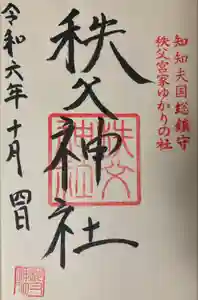 知知夫国総鎮守
秩父宮家ゆかりの社
秩父神社
秩父
神社
令和六年十月四日